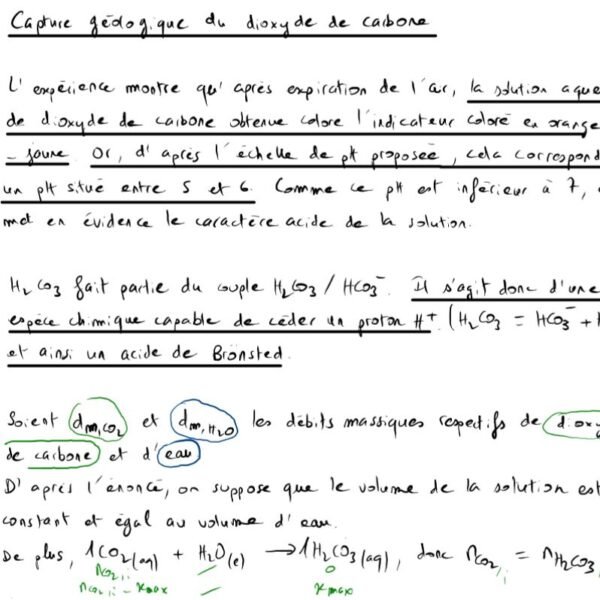 Capture géologique du dioxyde de carbone
L'expérience montre qu'après expiration de l'air, la solution aque
de dioxyde de carbone obtenue colore l'indicateur coloré en orange
- jaune. Or, d'après l'échelle de pH proposée, cela correspond
un pH situé entre 5 et 6. Comme ce pH est inférieur à 7,
met en évidence le caractère acide de la solution.
H2CO3 fait partie du couple H2CO3 / HCO3-. Il s'agit donc d'une
espèce chimique capable de céder un proton H+ (H2CO3 = HCO3- +
et ainsi un acide de Brönsted.
Soient dm,CO2 et dm,H2O les débits massiques respectifs de diox
de carbone et d'eau
D'après l'énoncé, on suppose que le volume de la solution est
constant et égal au volume d'eau.
De plus, 1CO2(aq) + H2O(l) → 1H2CO3(aq), donc nCO2,i = nH2CO3,
nCO2,i - 0
nCO2,i - xmax - xmax